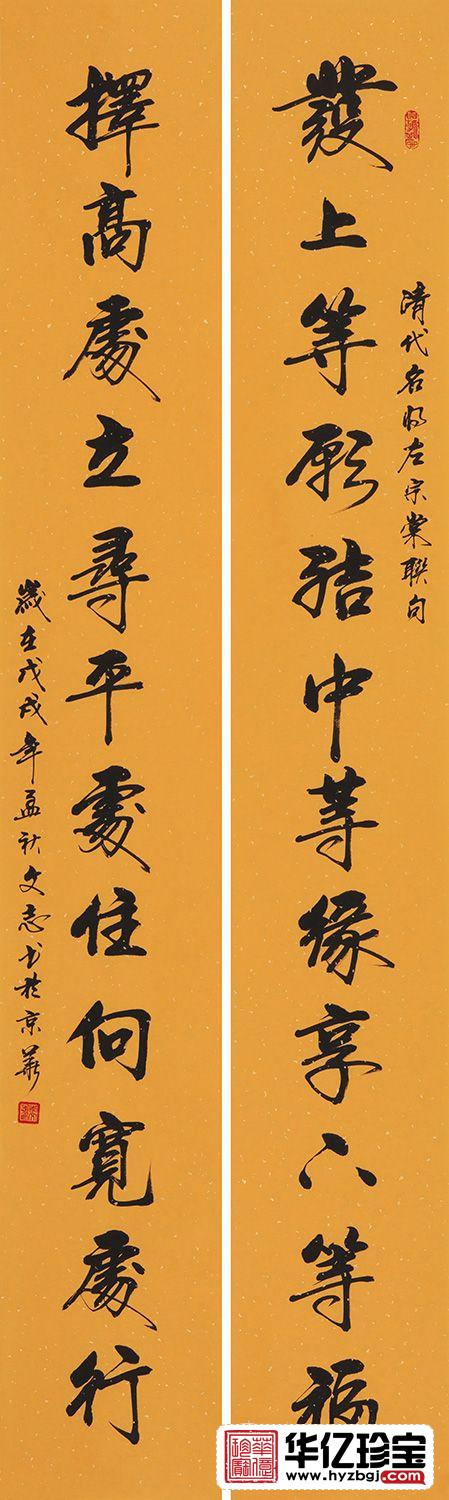 清代名將左宗棠聯句
發上等願結中等緣享下等福
擇高處立尋平處住向寬處行
歲在戊戌年孟秋文志書於京華
華億珍寶
华亿珍宝
www.hyzbgj.com